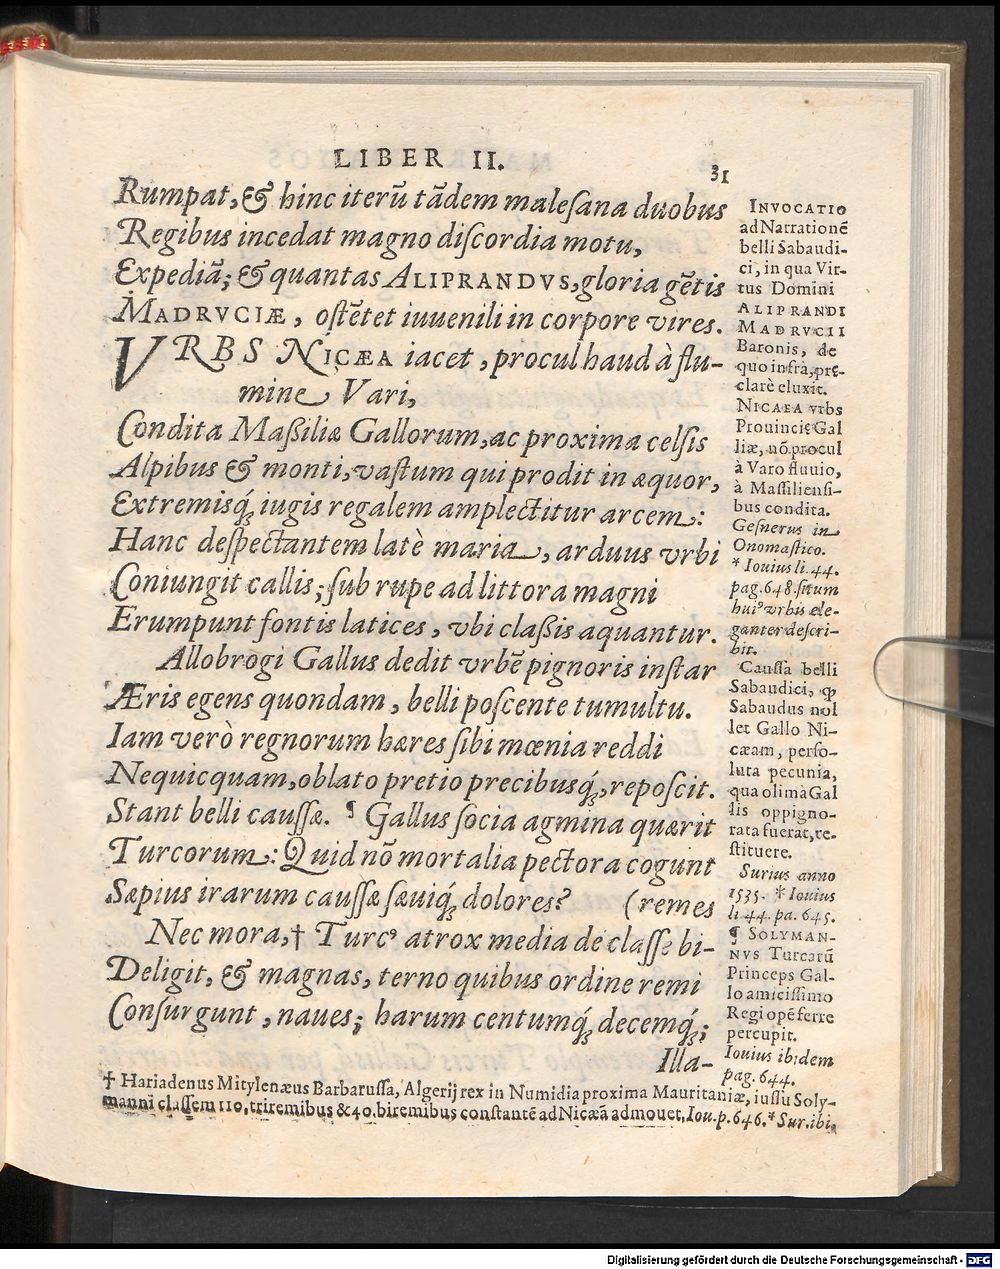 LIBER II.
31
Rumpat, & hinc iterũ tãdem malesana duobus
Regibus incedat magno discordia motu,
Expediã; & quantas ALIPRANDVS, gloria gẽtis
MADRVCIÆ, ostẽtet iuuenili in corpore vires.
VRBS NICÆA iacet, procul haud à flu-
mine Vari,
Condita Maßiliæ Gallorum, ac proxima celsis
Alpibus & monti, vastum qui prodit in æquor,
Extremisq́; iugis regalem amplectitur arcem:
Hanc despectantem latè maria, arduus vrbi
Coniungit callis; sub rupe ad littora magni
Erumpunt fontis latices, vbi claßis aquantur.
Allobrogi Gallus dedit vrbẽ pignoris instar
Æris egens quondam, belli poscente tumultu.
Iam verò regnorum hæres sibi mœnia reddi
Nequicquam, oblato pretio precibusq́;, reposcit.
Stant belli caussæ. ¶ Gallus socia agmina quærit
Turcorum: Quid nõ mortalia pectora cogunt
Sæpius irarum caussæ sæuiq́; dolores? (remes
Nec mora, † Turcꝰ atrox media de classe bi-
Deligit, & magnas, terno quibus ordine remi
Consurgunt, naues; harum centumq́; decemq́;
Illa-
INVOCATIO
ad Narrationẽ
belli Sabaudi-
ci, in qua Vir-
tus Domini
ALIPRANDI
MADRVCII
Baronis, de
quo infrà, prę-
clarè eluxit.
NICAEA vrbs
Prouincię Gal
liæ, nõ procul
à Varo fluuio,
à Massiliensi-
bus condita.
Gesnerus in
Onomastico.
* Iouius li. 44.
pag. 648. situm
huiꝰ vrbis ele-
ganter descri-
bit.
Caussa belli
Sabaudici, ꝙ
Sabaudus nol
let Gallo Ni-
cæam, perso-
luta pecunia,
qua olim à Gal
lis oppigno-
rata fuerat, re-
stituere.
Surius anno
1535. * Iouius
li. 44. pa. 645.
¶ SOLYMAN-
NVS Turcarũ
Princeps Gal-
lo amicissimo
Regi opẽ ferre
percupit.
Iouius ibidem
pag. 644.
† Hariadenus Mitylenæus Barbarussa, Algerij rex in Numidia proxima Mauritaniæ, iussu Soly-
manni classem 110. triremibus & 40. biremibus constantẽ ad Nicæã admouet, Iou. p. 646. * Sur. ibi.
Digitalisierung gefördert durch die Deutsche Forschungsgemeinschaft - DFG